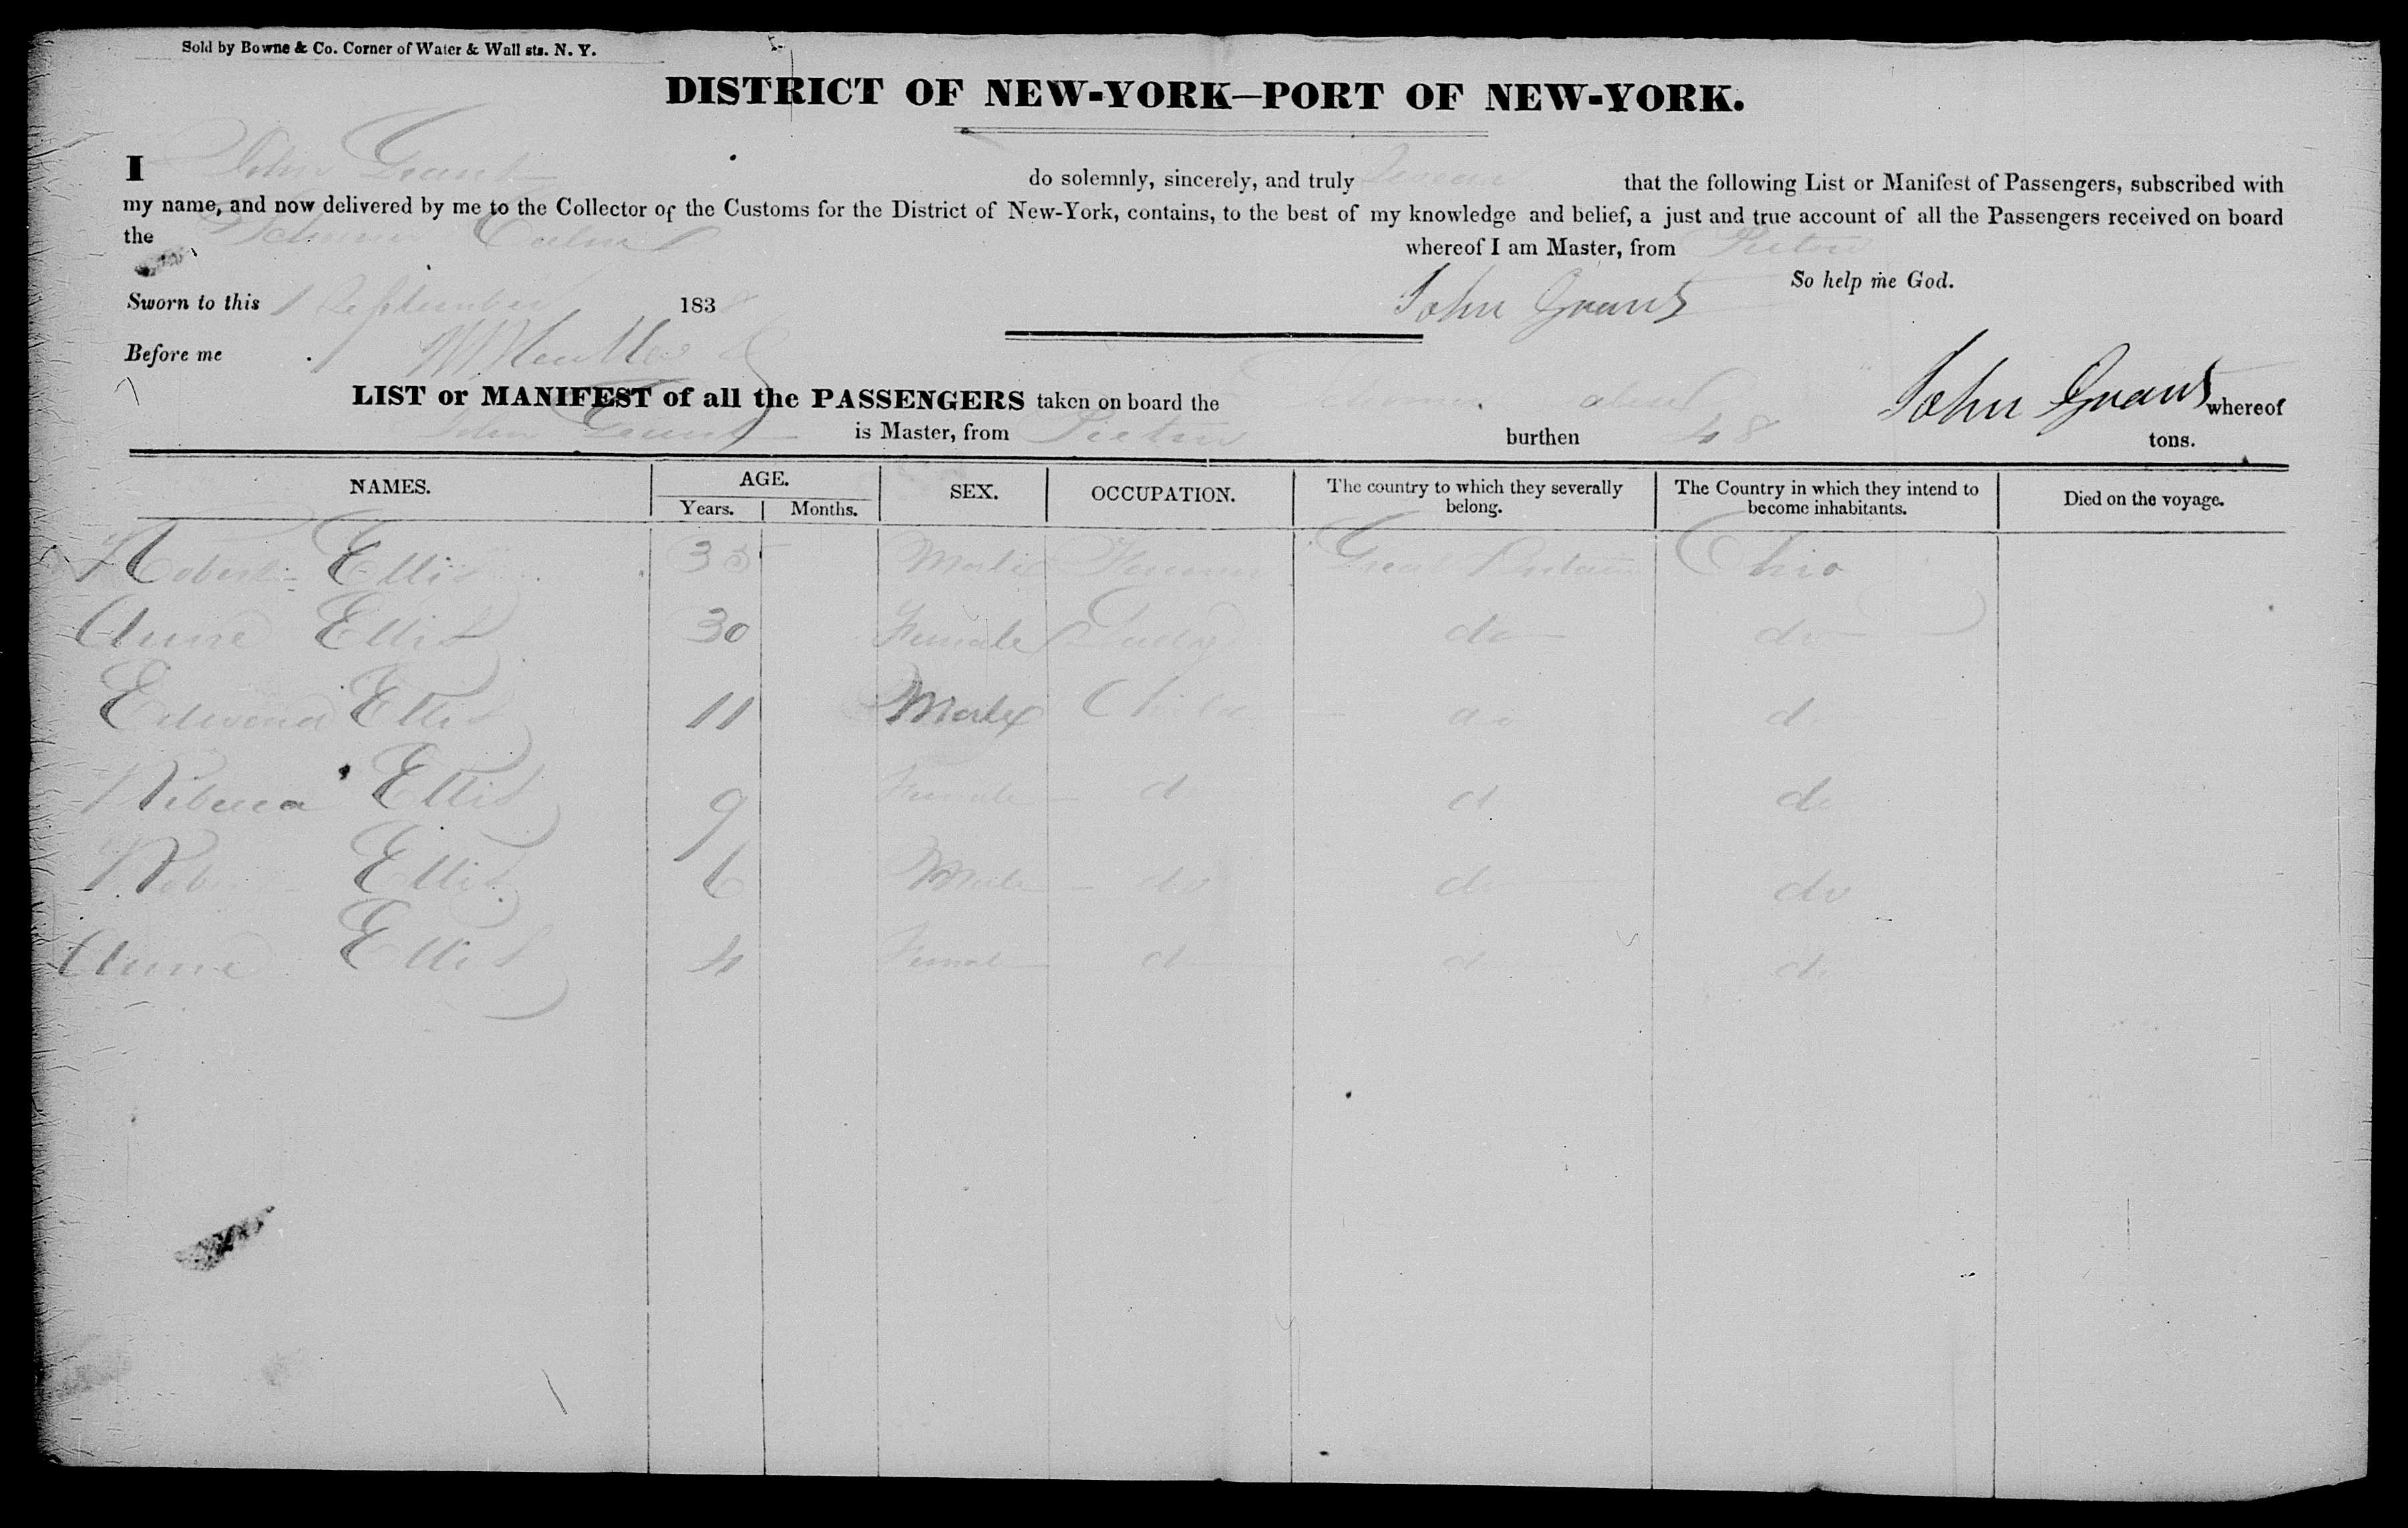 Sold by Bowne & Co. Corner of Water & Wall sts. N. Y.
DISTRICT OF NEW-YORK—PORT OF NEW-YORK.
I John Grant do solemnly, sincerely, and truly Swear that the following List or Manifest of Passengers, subscribed with
my name, and now delivered by me to the Collector of the Customs for the District of New-York, contains, to the best of my knowledge and belief, a just and true account of all the Passengers received on board
the whereof I am Master, from Pictou
So help me God.
Sworn to this 1 September 183
John Grant
Before me
LIST or MANIFEST of all the PASSENGERS taken on board the John Grant whereof
John Grant is Master, from Pictou burthen 48 tons.
NAMES. AGE. SEX. OCCUPATION. The country to which they severally belong. The Country in which they intend to become inhabitants. Died on the voyage.
Years. Months.
Robert Ellis 35 Male Farmer Great Britain Ohio
Anne Ellis 30 Female Lady do do
Edward Ellis 11 Male Child do do
Rebecca Ellis 9 Female do do do
Robt Ellis 6 Male do do do
Anne Ellis 4 Female do do do